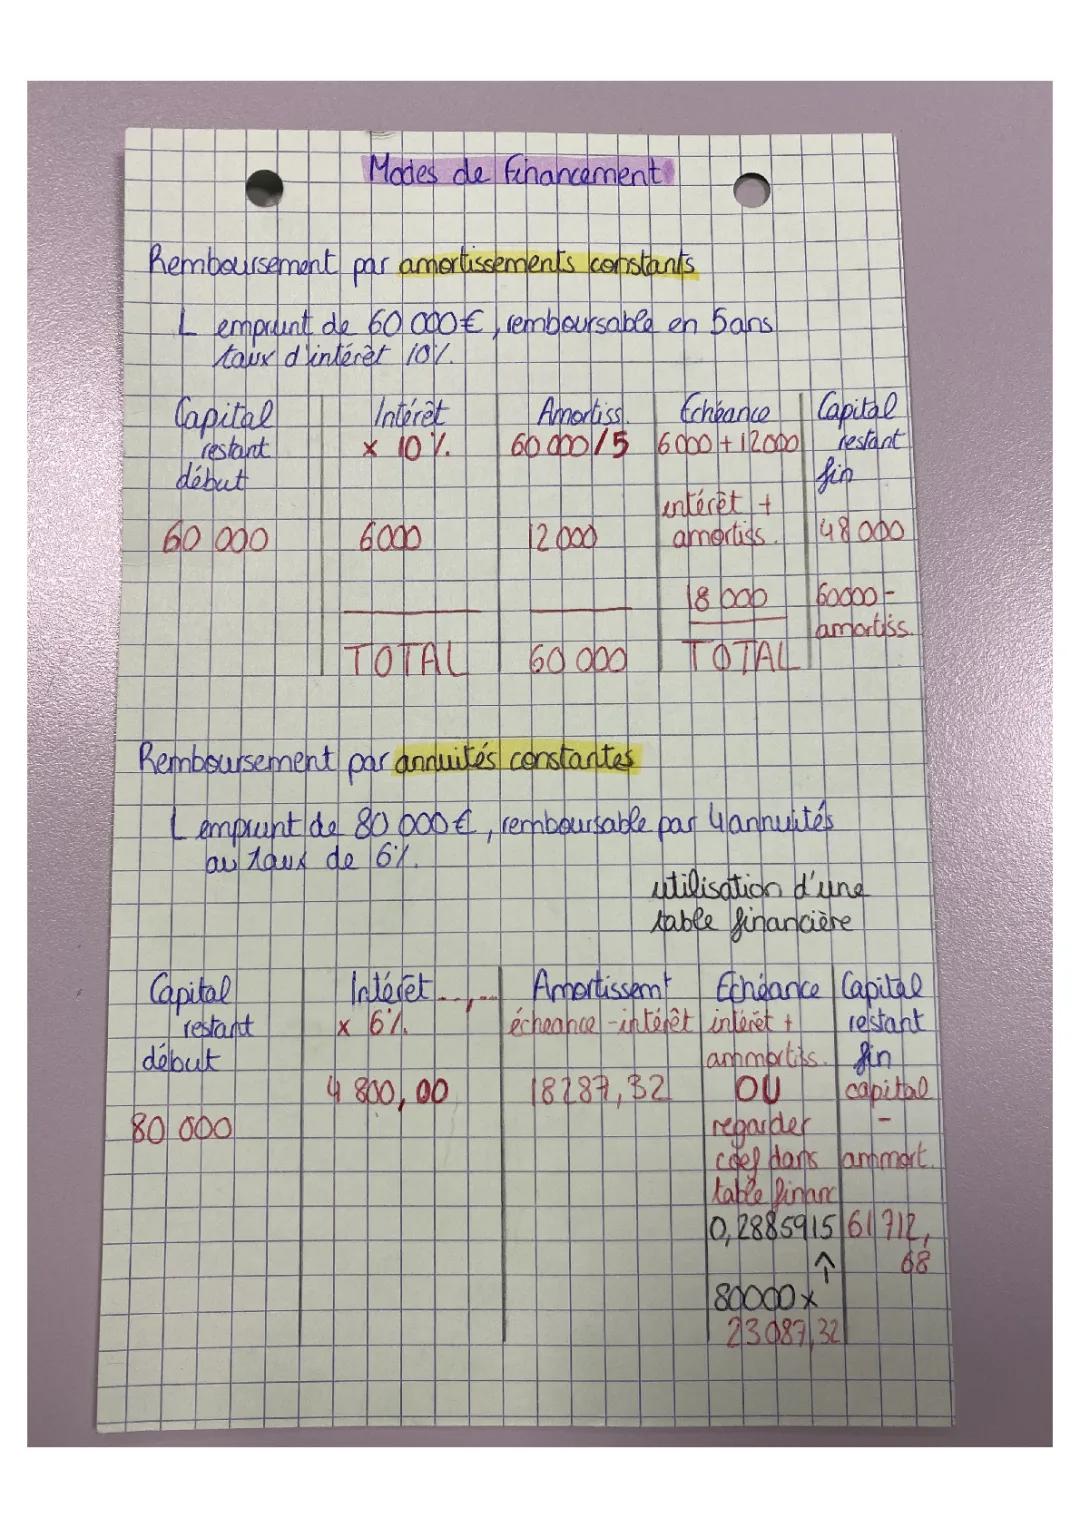 Modes de financement
Remboursement par amortissements constants
L emprunt de 60 000€, remboursable en 5ans
taux d'intérêt 10%.
Capital restant début
Intérêt x 10%.
Amortiss. 60 000/5
Echéance 6000 + 12000
Capital restant fin
intérêt + amortiss.
60 000
6000
12 000
48 000
18 000
60000 - amortiss.
TOTAL
60 000
TOTAL
Remboursement par annuités constantes
L emprunt de 80 000€, remboursable par 4 annuités
au taux de 6%.
utilisation d'une
table financière
Capital restant début
Intérêt x 6%.
Amortissemt échéance - intérêt
Echéance intérêt + ammortis. OU regarder coef dans table financ
Capital restant fin capital - ammort.
80 000
4 800,00
18287,32
0,2885915
61 712,68
↑
80000 x
23 087,32